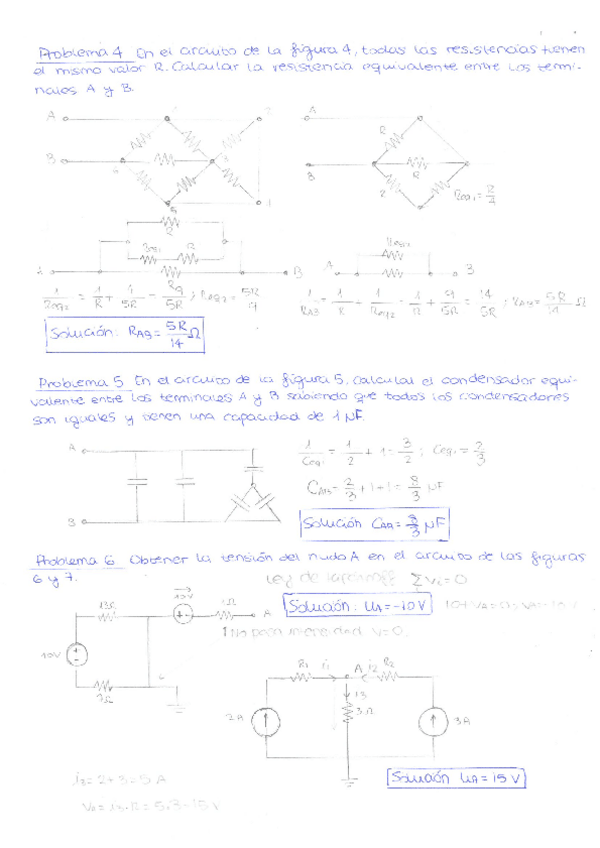 Problema 4 En el circuito de la figura 4, todas las resistencias tienen
el mismo valor R. Calcular la resistencia equivalente entre los termi-
nales A y B.
A
B
A
B
R
R
R
Req1 = R/4
R
Req1
R
B
A
B
Req2
1/Req2 = 1/R + 4/5R = 9/5R ; Req2 = 5R/9
1/RAB = 1/R + 1/Req2 = 1/R + 9/5R = 14/5R ; RAB = 5R/14 Ω
Solución: RAB = 5R/14 Ω
Problema 5 En el circuito de la figura 5, calcular el condensador equi-
valente entre los terminales A y B sabiendo que todos los condensadores
son iguales y tienen una capacidad de 1 µF.
A
B
1/Ceq1 = 1/2 + 1 = 3/2 ; Ceq1 = 2/3
CAB = 2/3 + 1 + 1 = 8/3 µF
Solución CAB = 8/3 µF
Problema 6 Obtener la tensión del nudo A en el circuito de las figuras
6 y 7.
Ley de Kirchhoff ΣVi = 0
Solución: UA = -10V
10V
1Ω
A
10V
7Ω
R1
i1
A
i2
R2
i3
3Ω
2A
3A
i3 = 2+3 = 5 A
VA = i3·R = 5·3 = 15 V
Solución UA = 15 V